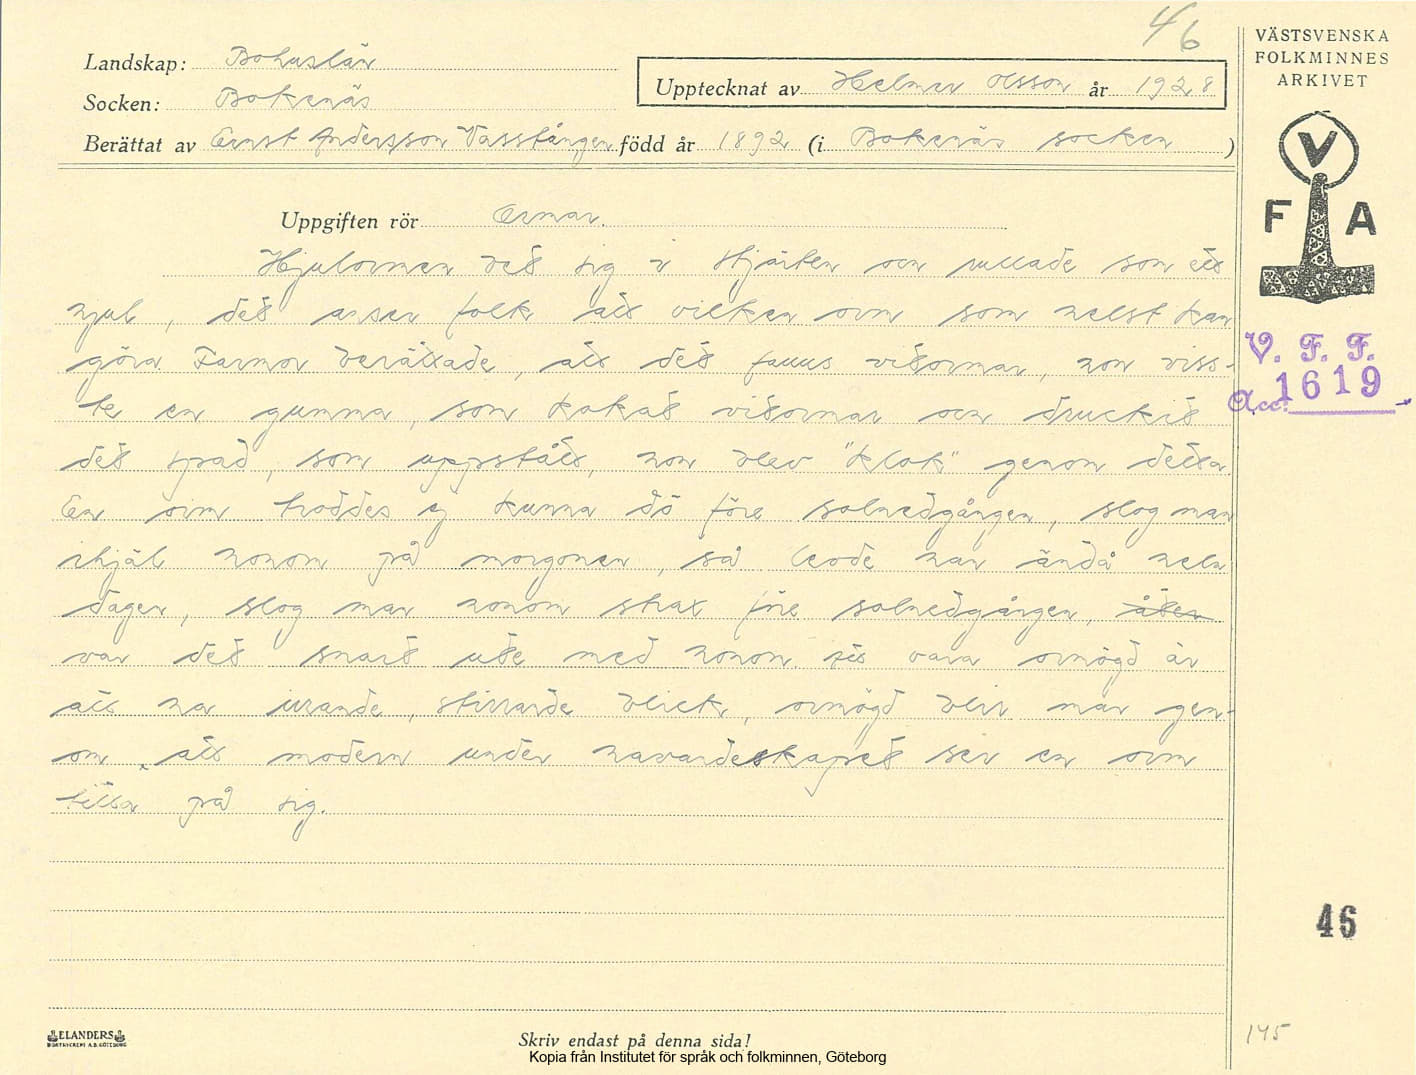 46
VÄSTSVENSKA
FOLKMINNES
ARKIVET
Landskap: Bohuslän
Upptecknat av Helmer Olsson år 1928
Socken: Bokenäs
Berättat av Ernst Andersson Vasstången född år 1892 (i Bokenäs socken)
V
F A
Uppgiften rör Ormar.
Hjulormen bet sig i stjärten och rullade som ett
hjul, det anser folk att vilken orm som helst kan
göra. Farmor berättade, att det fanns vitormar, hon viss-
te en gumma, som kokat vitormar och druckit
det spad, som uppstått, hon blev "klok" genom detta
En orm troddes ej kunna dö före solnedgången, slog man
ihjäl honom på morgonen, så levde han ändå hela
dagen, slog man honom strax före solnedgången, åter
var det snart ute med honom. Att vara ormögd är
att ha irrande, stirrande blick, ormögd blir man gen-
om att modern under havandeskapet ser en orm
titta på sig.
V. F. F.
Acc: 1619
46
145
ELANDERS
BOKTRYCKERI A.B. GÖTEBORG
Skriv endast på denna sida!
Kopia från Institutet för språk och folkminnen, Göteborg